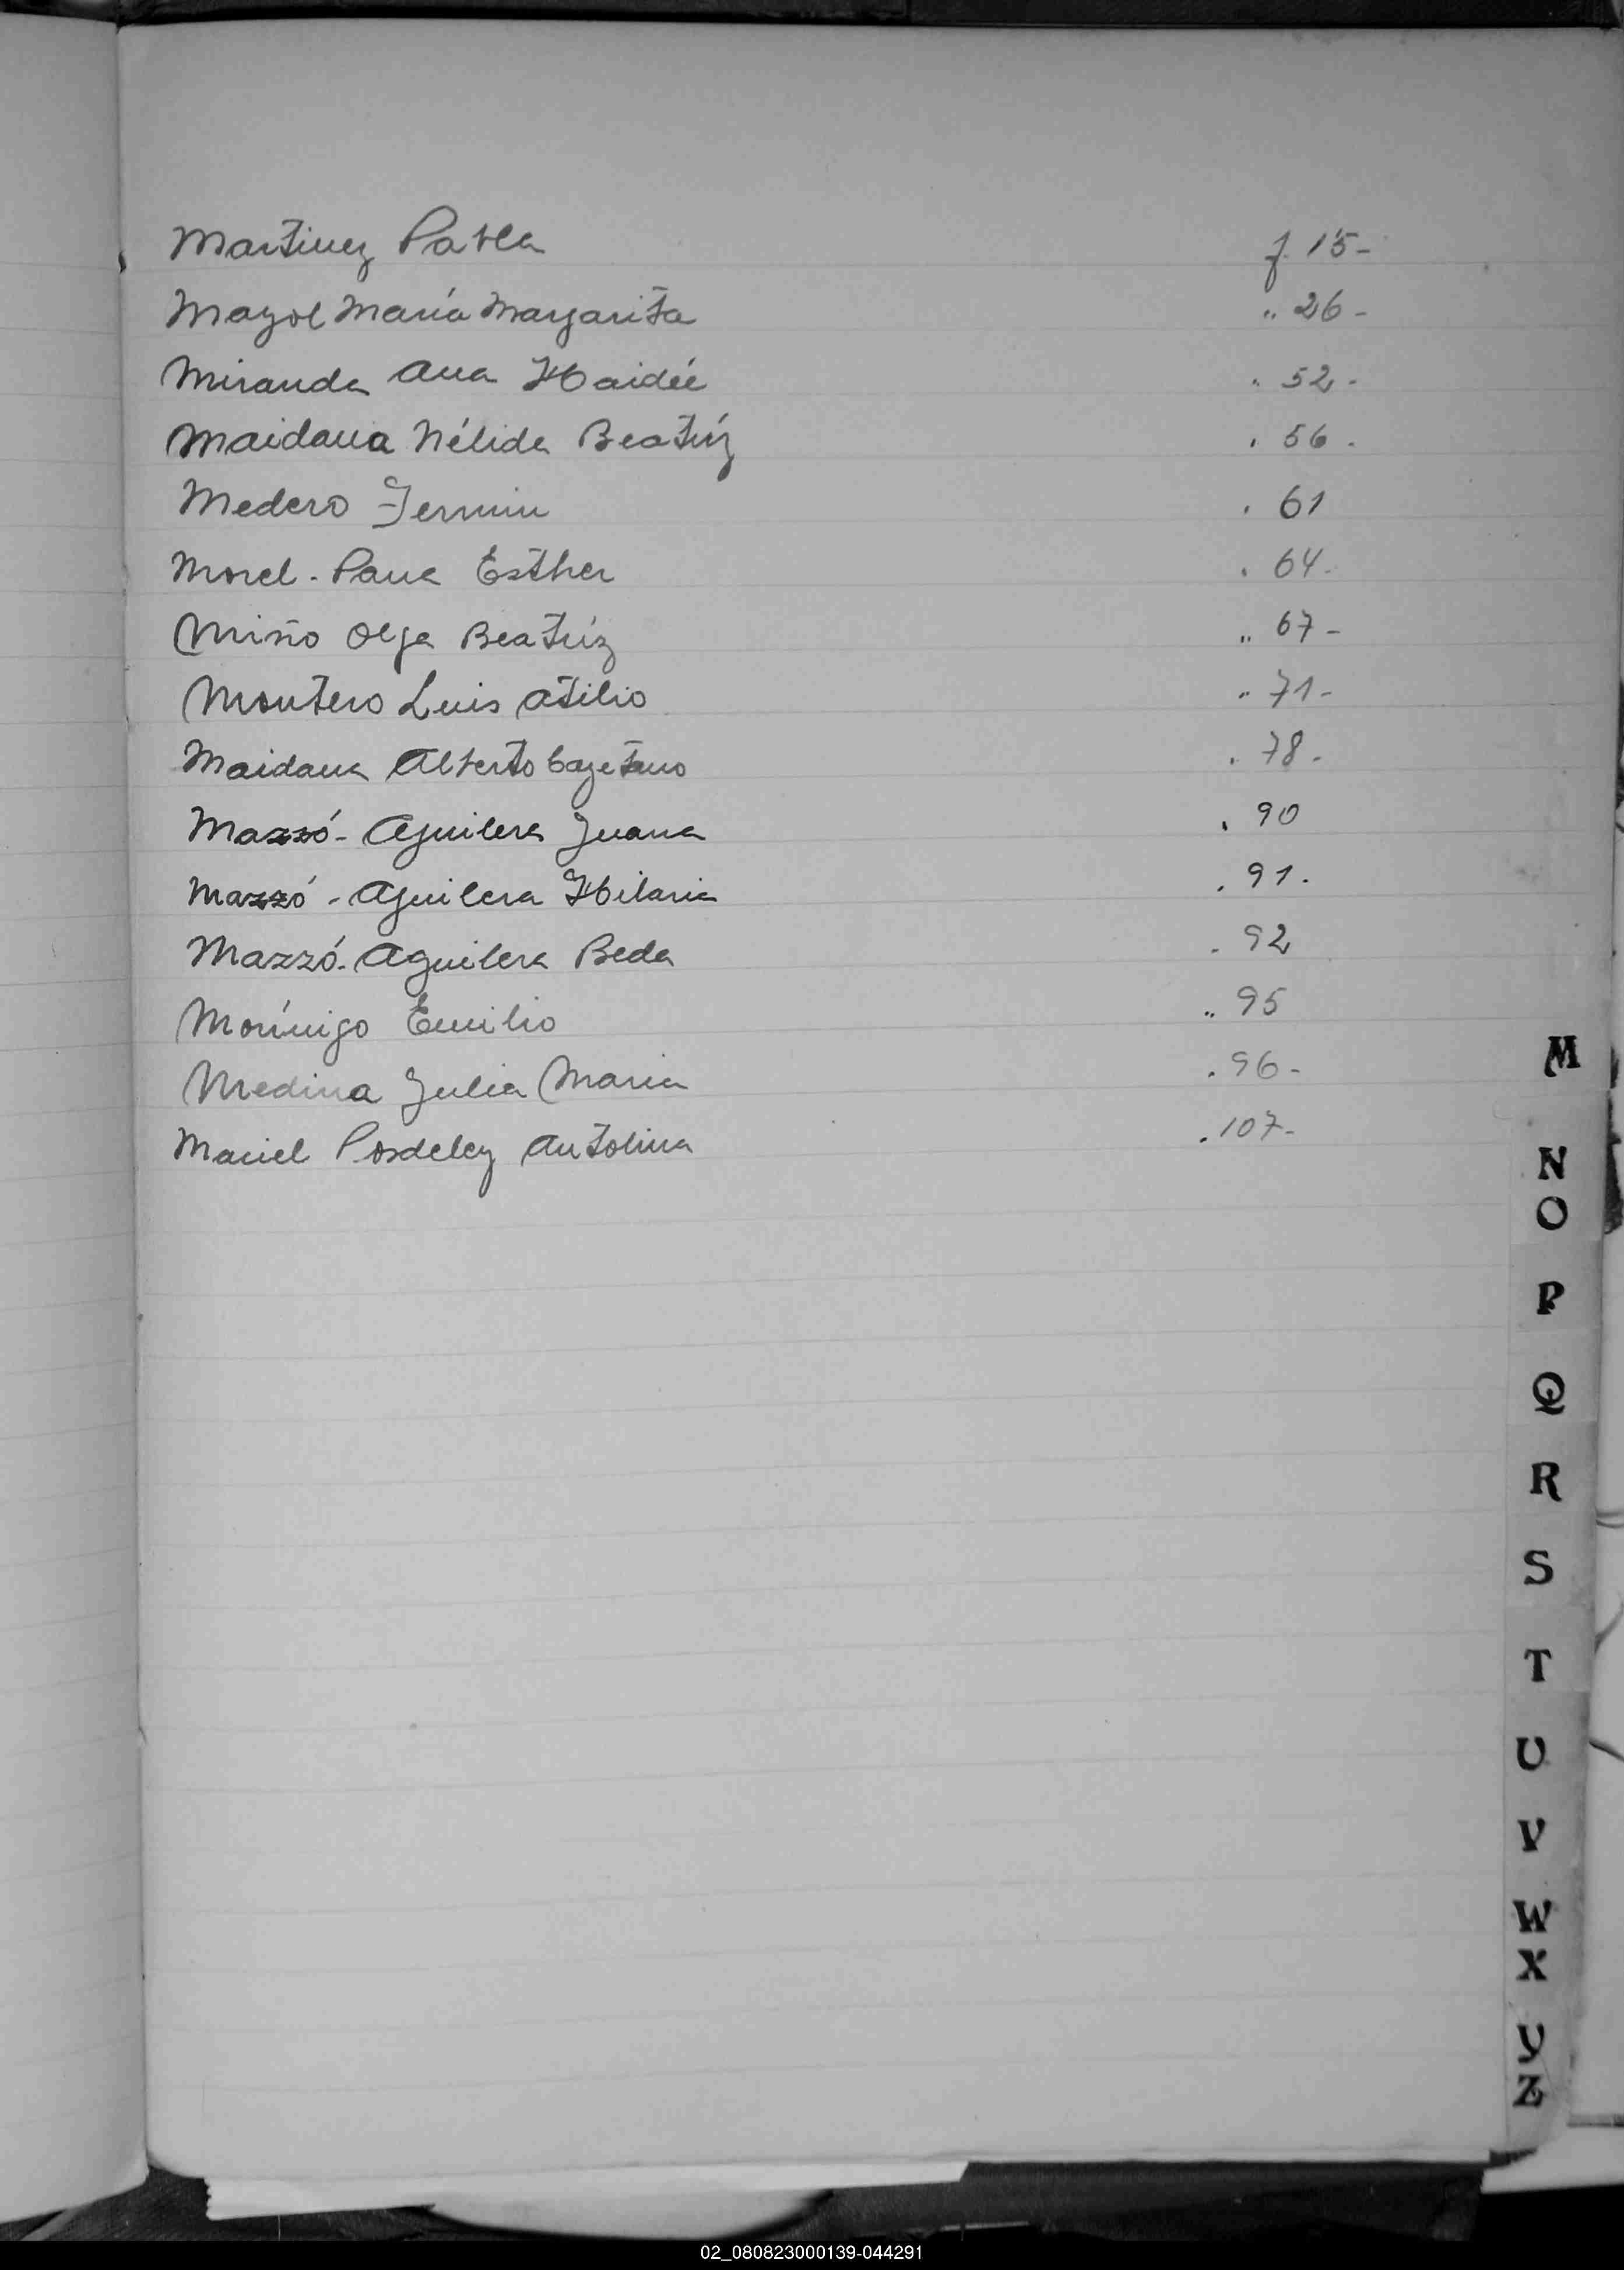 Martinez Pabla f 15-
Mayol María Margarita " 26-
Miranda Ana Haidée " 52.
Maidana Nélida Beatríz " 56.
Medero Fermin " 61
Morel - Pana Esther " 64.
Miño Olga Beatríz " 67-
Montero Luis Atilio " 71-
Maidana Alberto Cayetano " 78.
Mazzó - Aguilera Juana " 90
Mazzó - Aguilera Hilaria " 91.
Mazzó - Aguilera Beda " 92
Morínigo Emilio " 95
Medina Julia Maria " 96-
Maciel Posdeley Antolina " 107-
M
N
O
P
Q
R
S
T
U
V
W
X
Y
Z
02_080823000139-044291